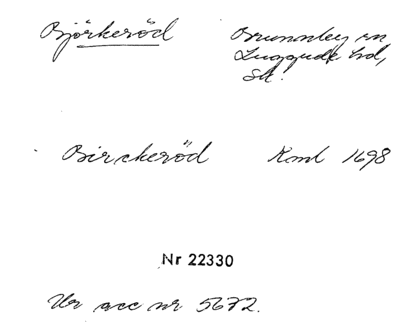 Björkeröd
Brunnby sn
Luggude hd,
Sk.
Birckeröd Koml 1698
Nr 22330
Ur acc nr 5672.